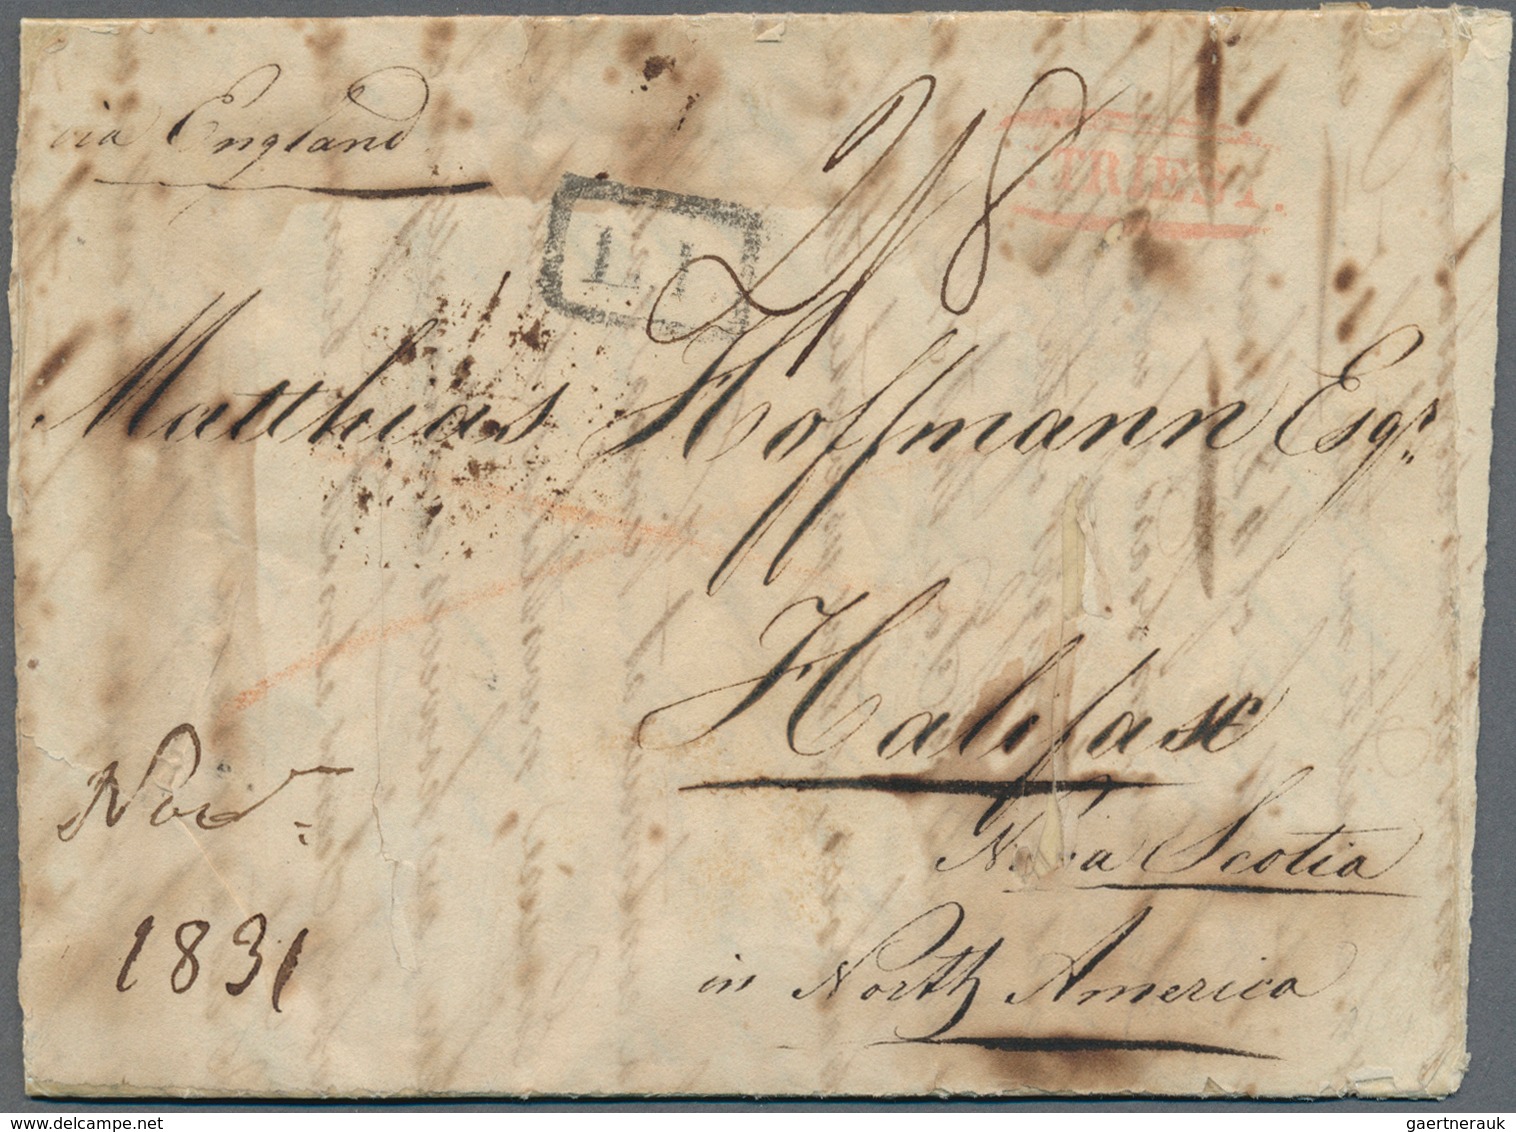 via England
TRIEST.
L. I
Matthias Hoffmann Esqr.
Halifax
Nova Scotia
in North America
Novr
1831
gaertnerauk